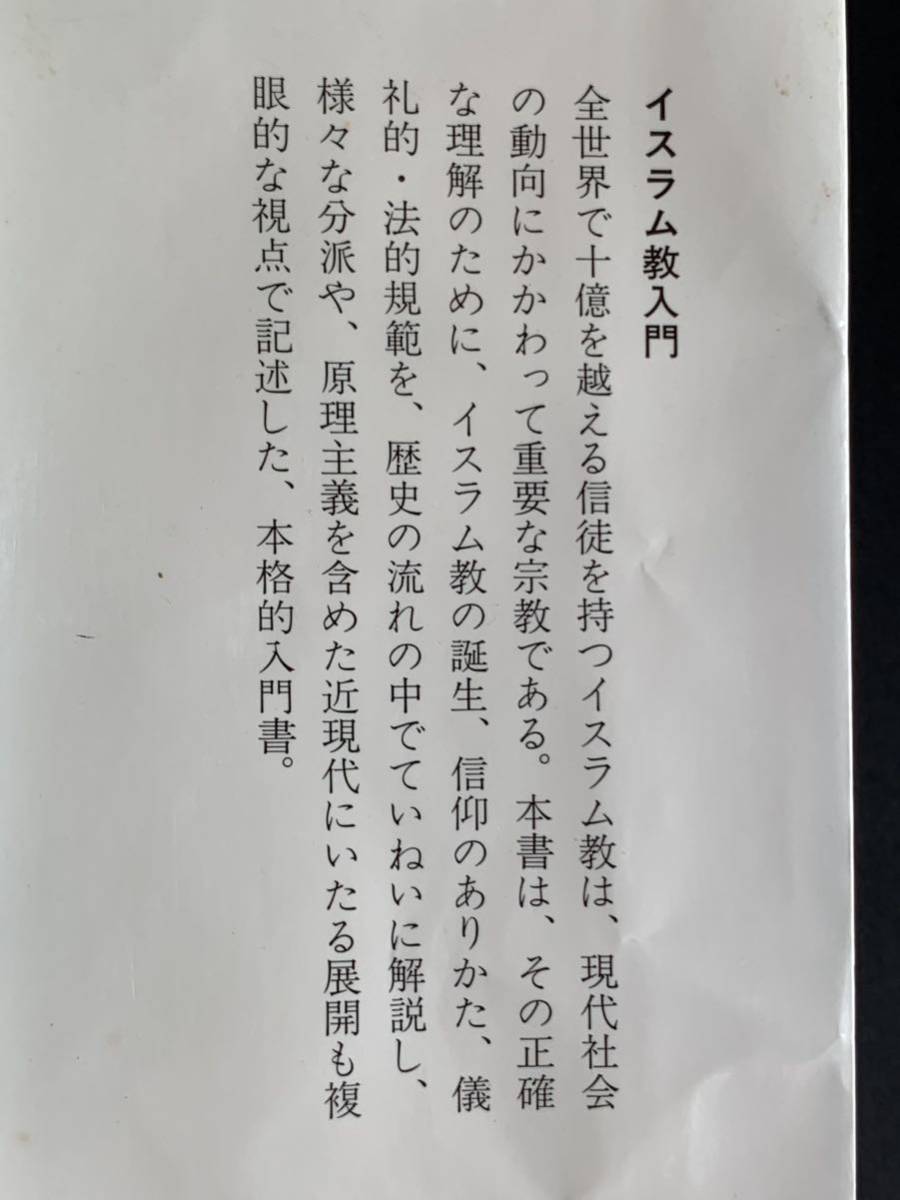 イスラム教入門
全世界で十億を越える信徒を持つイスラム教は、現代社会
の動向にかかわって重要な宗教である。本書は、その正確
な理解のために、イスラム教の誕生、信仰のありかた、儀
礼的・法的規範を、歴史の流れの中でていねいに解説し、
様々な分派や、原理主義を含めた近現代にいたる展開も複
眼的な視点で記述した、本格的入門書。